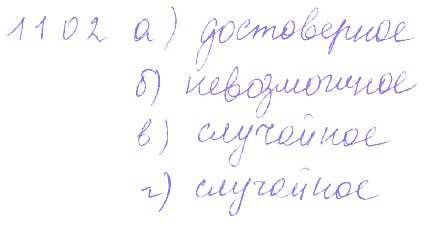 1102 а) достоверное
б) невозможное
в) случайное
г) случайное